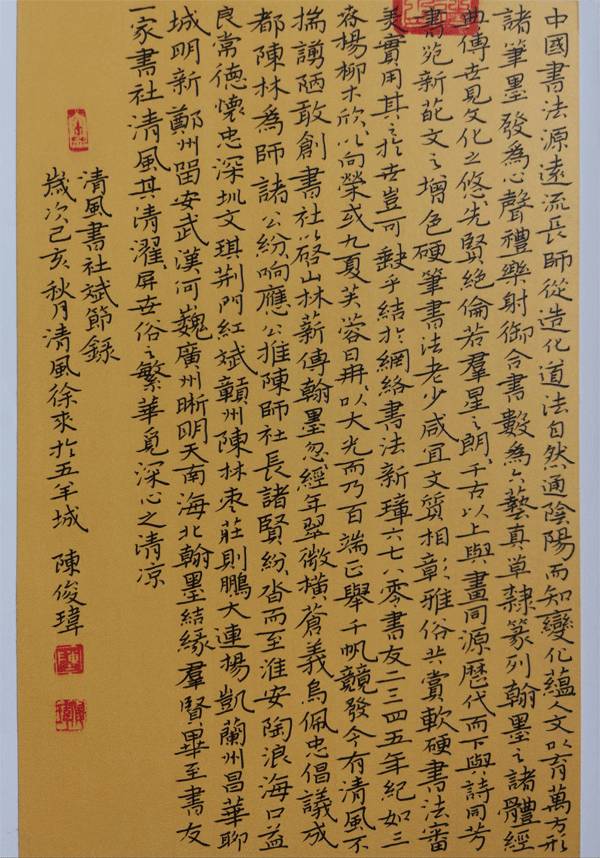 中國書法源遠流長師從造化道法自然通陰陽而知變化蘊人文以育萬方形
諸筆墨發為心聲禮樂射御合書數為六藝真草隸篆列翰墨之諸體經
典傳世見文化之悠先賢絕倫若羣星之朗千古以上與畫同源歷代而下與詩同芳
書苑新葩文之增色硬筆書法老少咸宜文質相彰雅俗共賞軟硬書法審
美實用其之於世豈可缺乎結於網絡書法新璋六七八零書友二三四五年紀如三
春楊柳木欣以向榮或九夏芙蓉日冉以大光而乃百端正舉千帆競發今有清風不
揣謭陋敢創書社以啓山林薪傳翰墨忽經年翠微橫蒼義烏佩忠倡議成
都陳林為師諸公紛响應公推陳師社長諸賢紛沓而至淮安陶浪海口益
良常德懷忠深圳文琪荆門紅斌贛州陳林枣莊則鵬大連楊凱蘭州昌華聊
城明新鄭州留安武漢何巍廣州晰明天南海北翰墨結緣羣賢畢至書友
一家書社清風其清濯屏世俗之繁華覓深心之清凉
清風書社斌節録
歲次己亥秋月清風徐來於五羊城 陳俊瑋